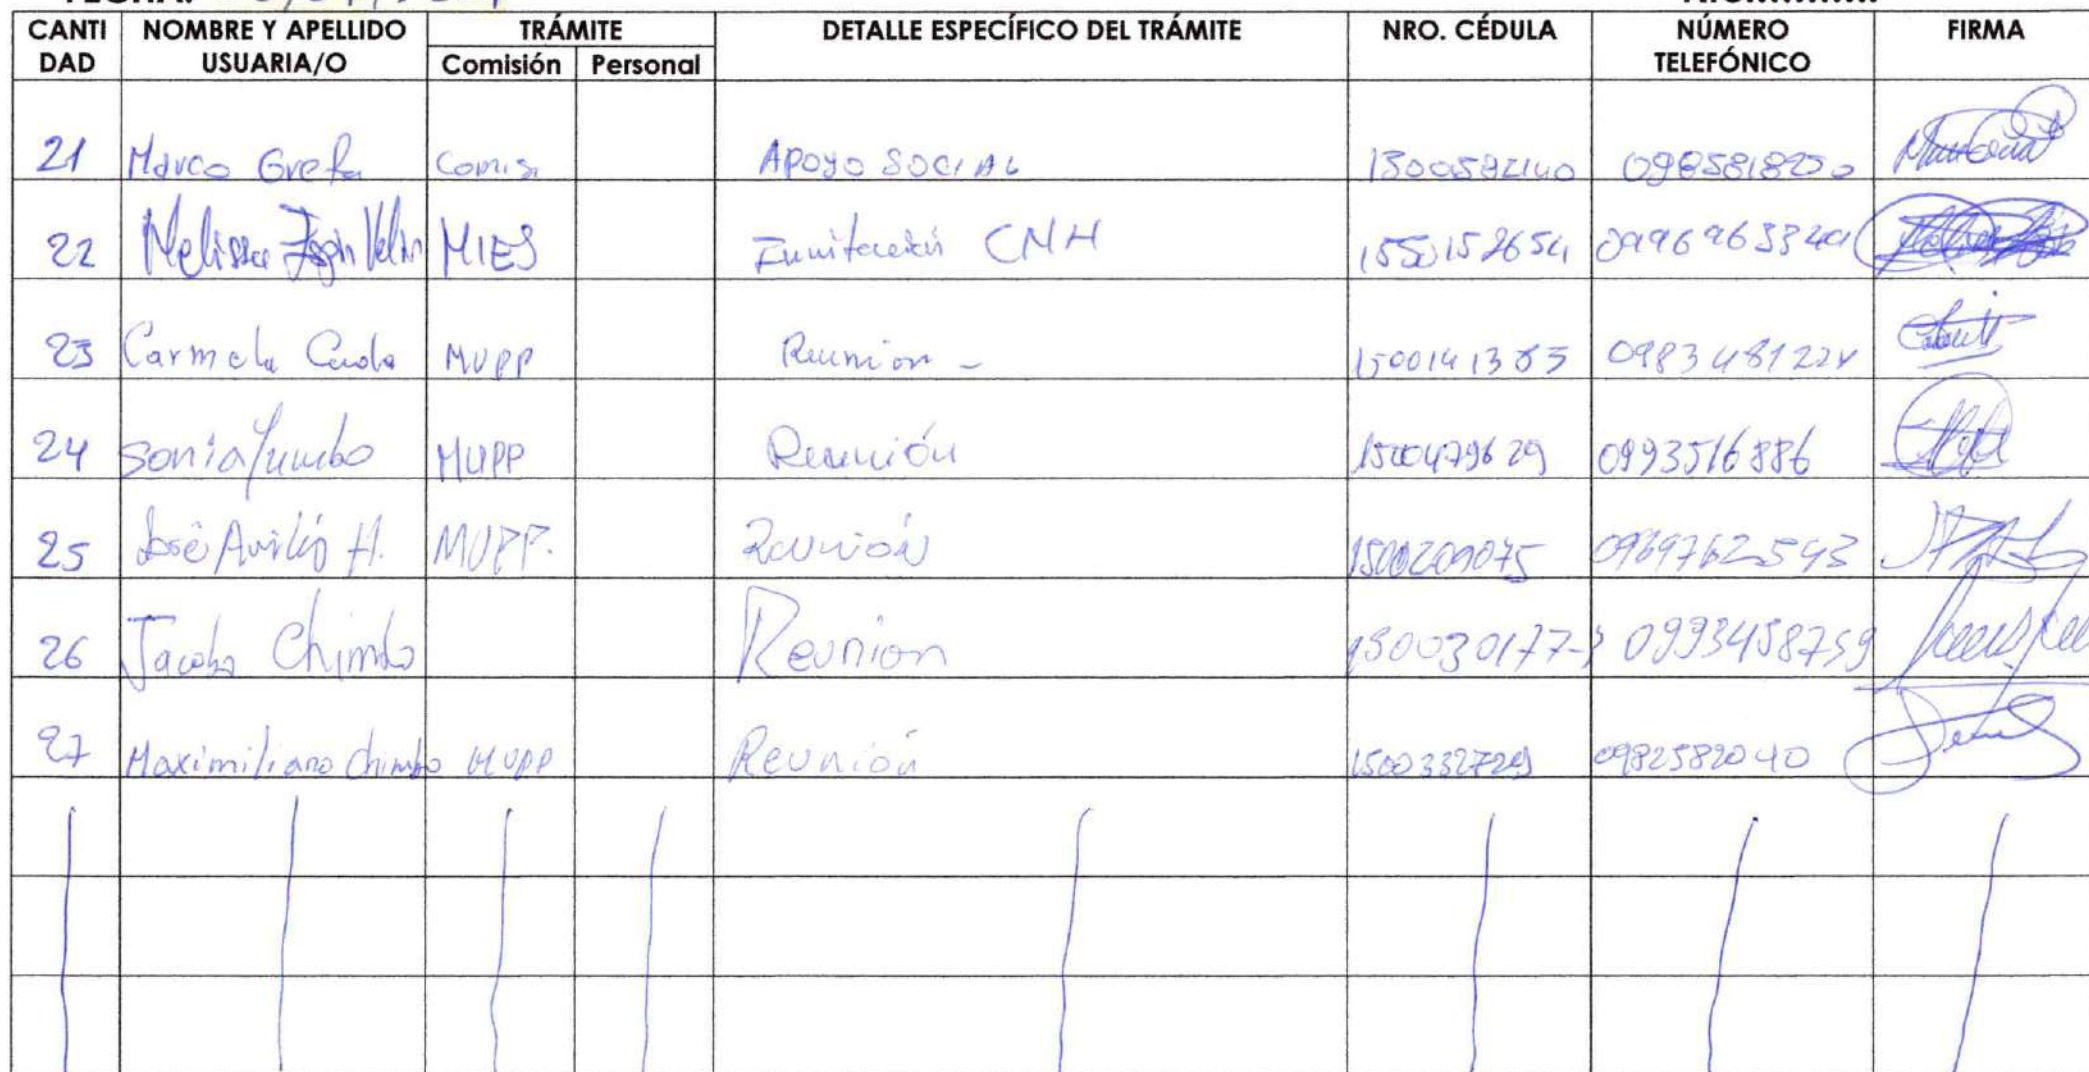 FECHA:
CANTI DAD NOMBRE Y APELLIDO USUARIA/O TRÁMITE Comisión Personal DETALLE ESPECÍFICO DEL TRÁMITE NRO. CÉDULA NÚMERO TELEFÓNICO FIRMA
21 Marco Grefa Comisi APOYO SOCIAL
22 Melissa MIES CNH 1550152654
23 Carmela MUPP Reunion - 0983481224
24 Sonia Yumbo MUPP Reunión 1500479629 0993516886
25 José Avilés H. MUPP. Reunión 1500209075 0969762543
26 Jacobo Chimbo Reunion 150030177-3 0993458759
27 Maximiliano Chimbo MUPP Reunión 1500332729 0982582040